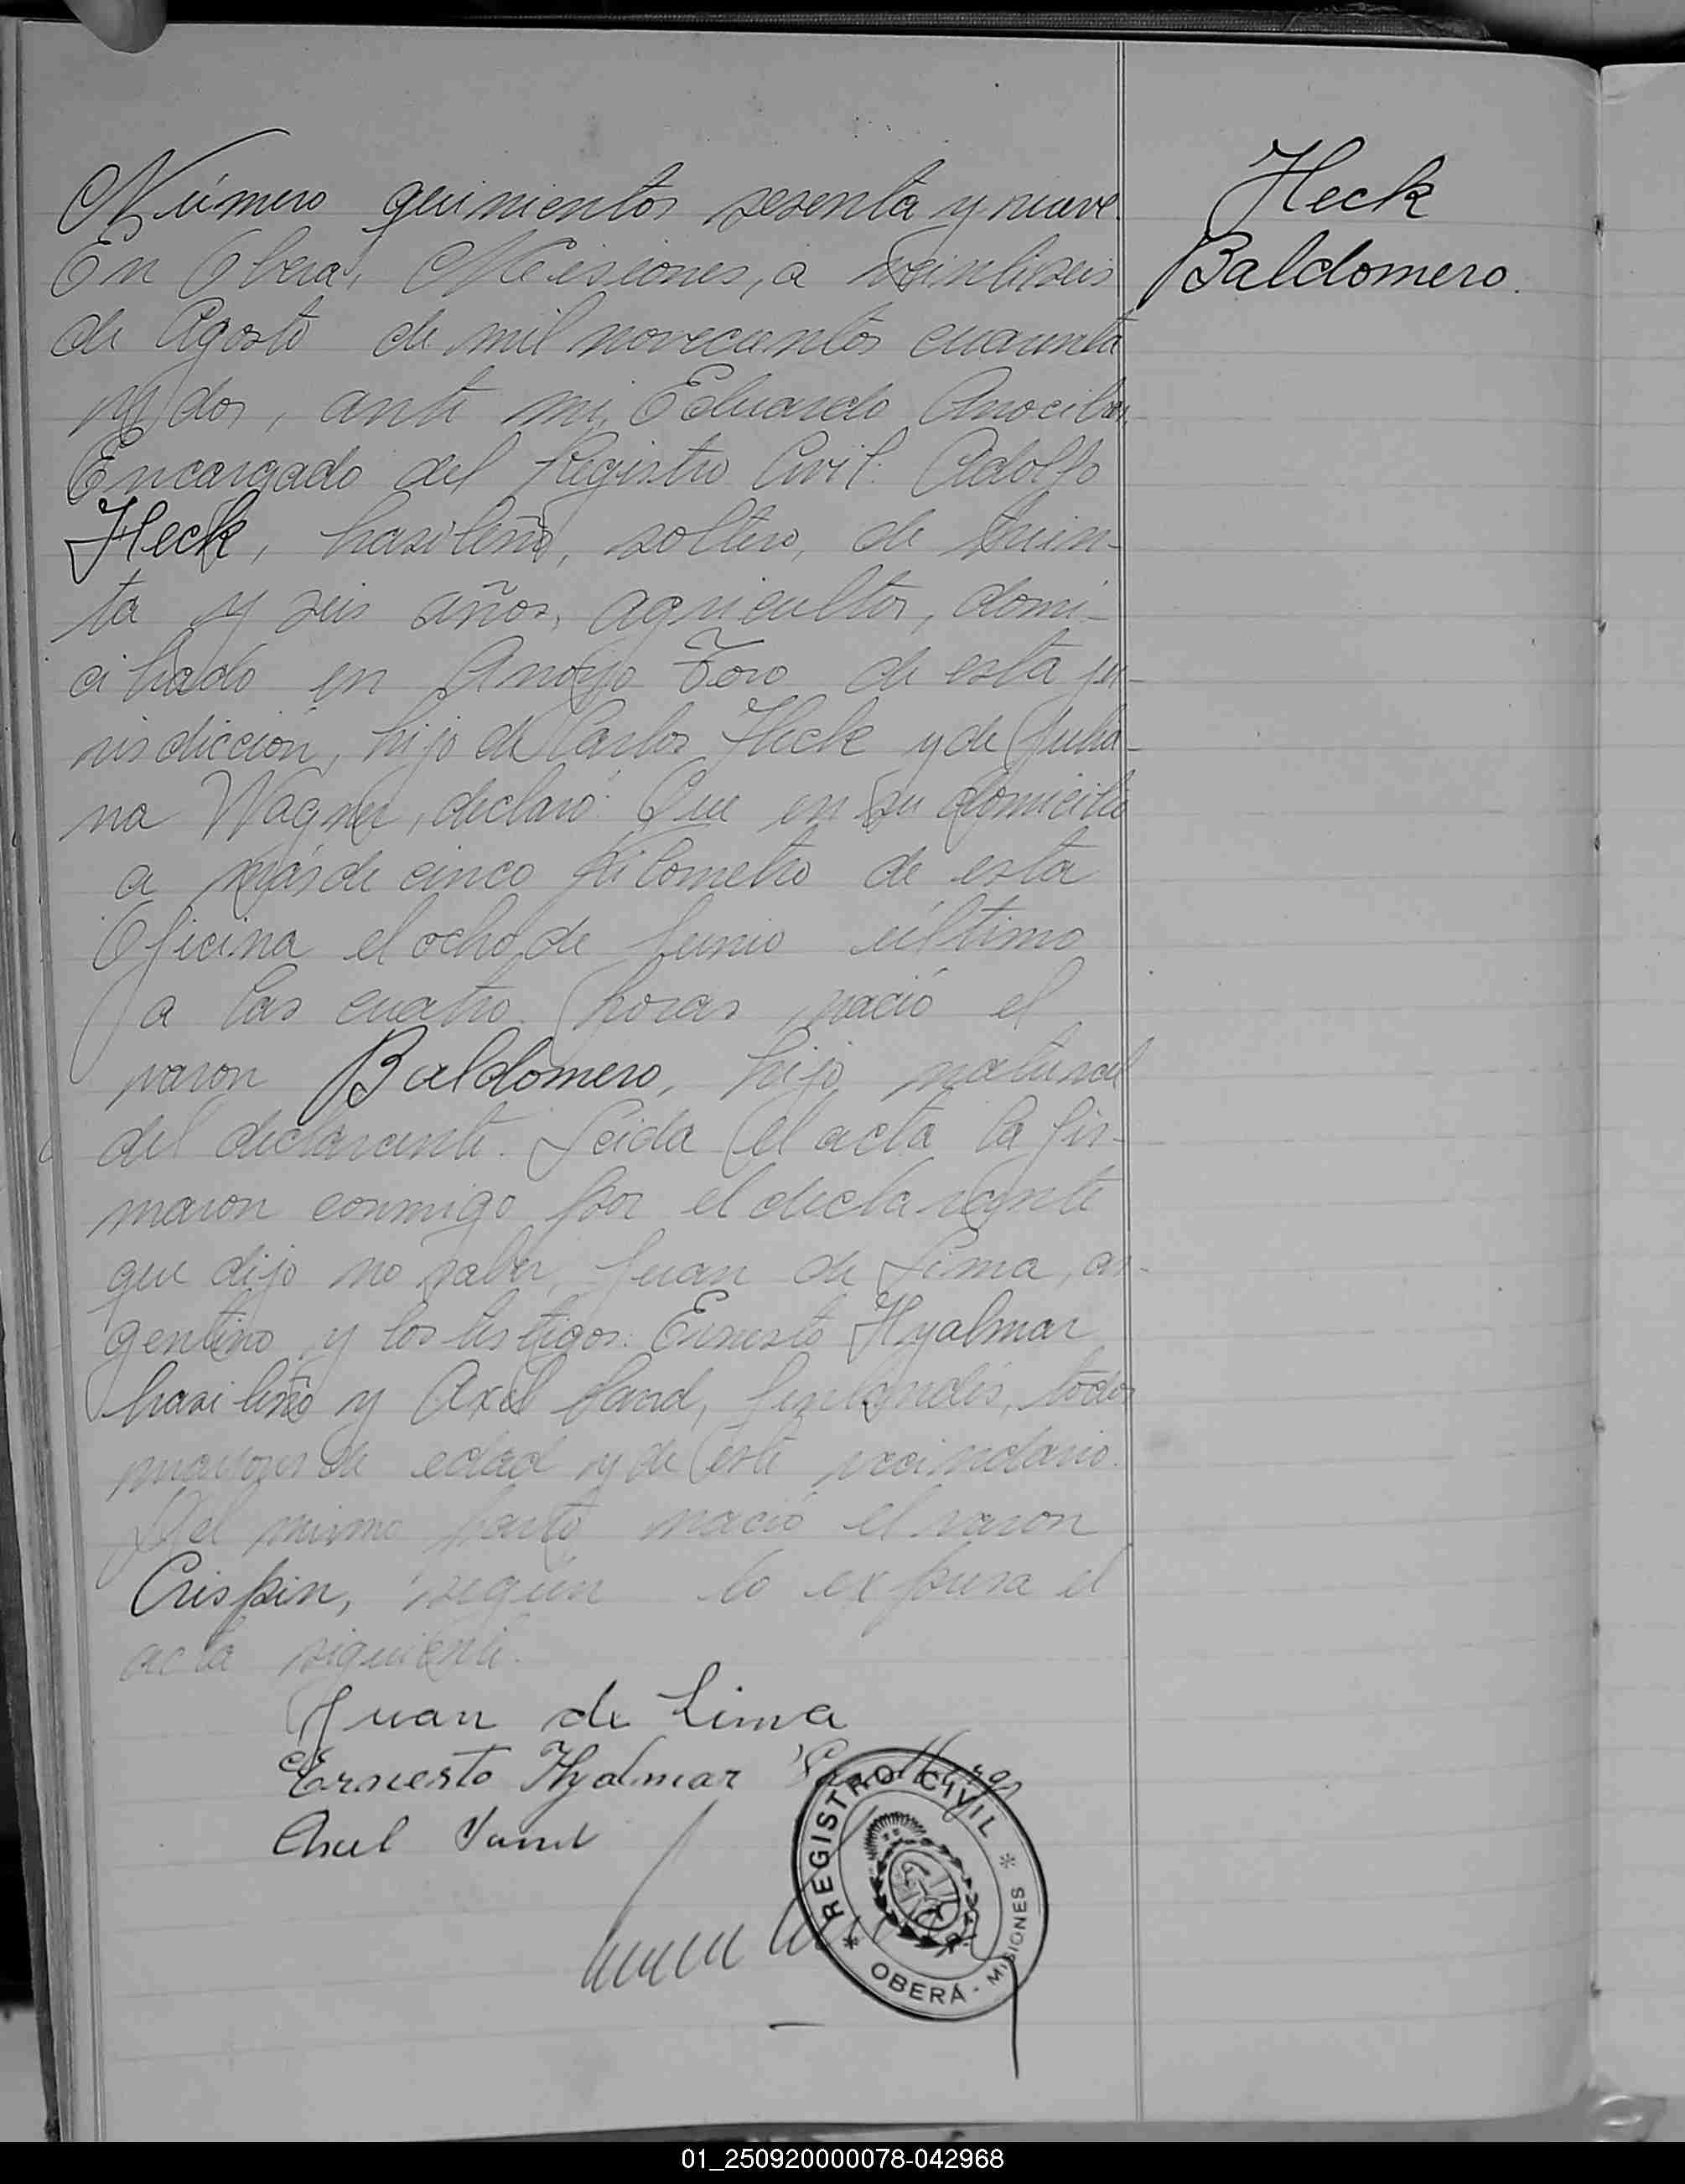 Número quinientos sesenta y nueve.
En Oberá, Misiones, a veintiseis
de Agosto de mil novecientos cuarenta
y dos, ante mi, Eduardo Arrocibar,
Encargado del Registro Civil: Adolfo
Heck, brasileño, soltero, de trein-
ta y seis años, agricultor, domi-
ciliado en Arroyo Toro de esta ju-
risdicción, hijo de Carlos Heck y de Julia-
na Wagner, declaró: Que en su domicilio
a más de cinco kilometro de esta
Oficina el ocho de Junio último
a las cuatro horas, nació el
varon Baldomero, hijo natural
del declarante. Leida el acta la fir-
maron conmigo por el declarante
que dijo no saber, Juan de Lima, ar-
gentino y los testigos: Ernesto Hyalmar
brasileño y Axel Sand, finlandés, todos
mayores de edad y de este vecindario.
Del mismo parto nació el varon
Crispin, según lo expresa el
acta siguiente.
Juan de Lima
Ernesto Hyalmar
Axel Sand
REGISTRO CIVIL
* OBERÁ - MISIONES *
Heck
Baldomero.
01_250920000078-042968